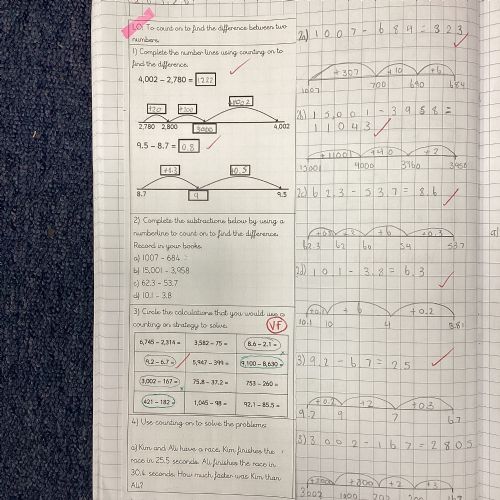 LO: To count on to find the difference between two
numbers.
1) Complete the number lines using counting on to
find the difference.
4,002 – 2,780 = 1222
+20
+200
+1002
2,780 2,800
3000
4,002
9.5 – 8.7 = 0.8
+0.3
+0.5
8.7
9
9.5
2) Complete the subtractions below by using a
numberline to count on to find the difference.
Record in your books.
a) 1007 – 684
b) 15,001 – 3,958
c) 62.3 – 53.7
d) 10.1 – 3.8
3) Circle the calculations that you would use a
counting on strategy to solve.
VF
6,745 – 2,314 = 3,582 – 75 = 8.6 – 2.1 =
9.2 – 6.7 = 5,947 – 399 = 9,100 – 8,630 =
3,002 – 167 = 75.8 – 37.2 = 753 – 260 =
421 – 182 = 1,045 – 98 = 92.1 – 85.5 =
4) Use counting on to solve the problems:
a) Kim and Ali have a race. Kim finishes the
race in 25.5 seconds. Ali finishes the race in
30.6 seconds. How much faster was Kim than
Ali?
2a) 1007 – 684 = 323
+307 +10 +6
1007 700 690 684
15,001 – 3958 =
11043
+11001 +40 +2
15001 4000 3960 3958
2c) 62.3 – 53.7 = 8.6
+6 +0.3
62.3 62 60 54 53.7
2d) 10.1 – 3.8 = 6.3
+0.1 + 6 +0.2
10.1 10 4 3.8
3) 9.2 – 6.7 = 2.5
+0.2 +2 +0.3
9.2 9 7 6.7
3) 3002 – 167 = 2805
+800 +2 +3
3002
a)